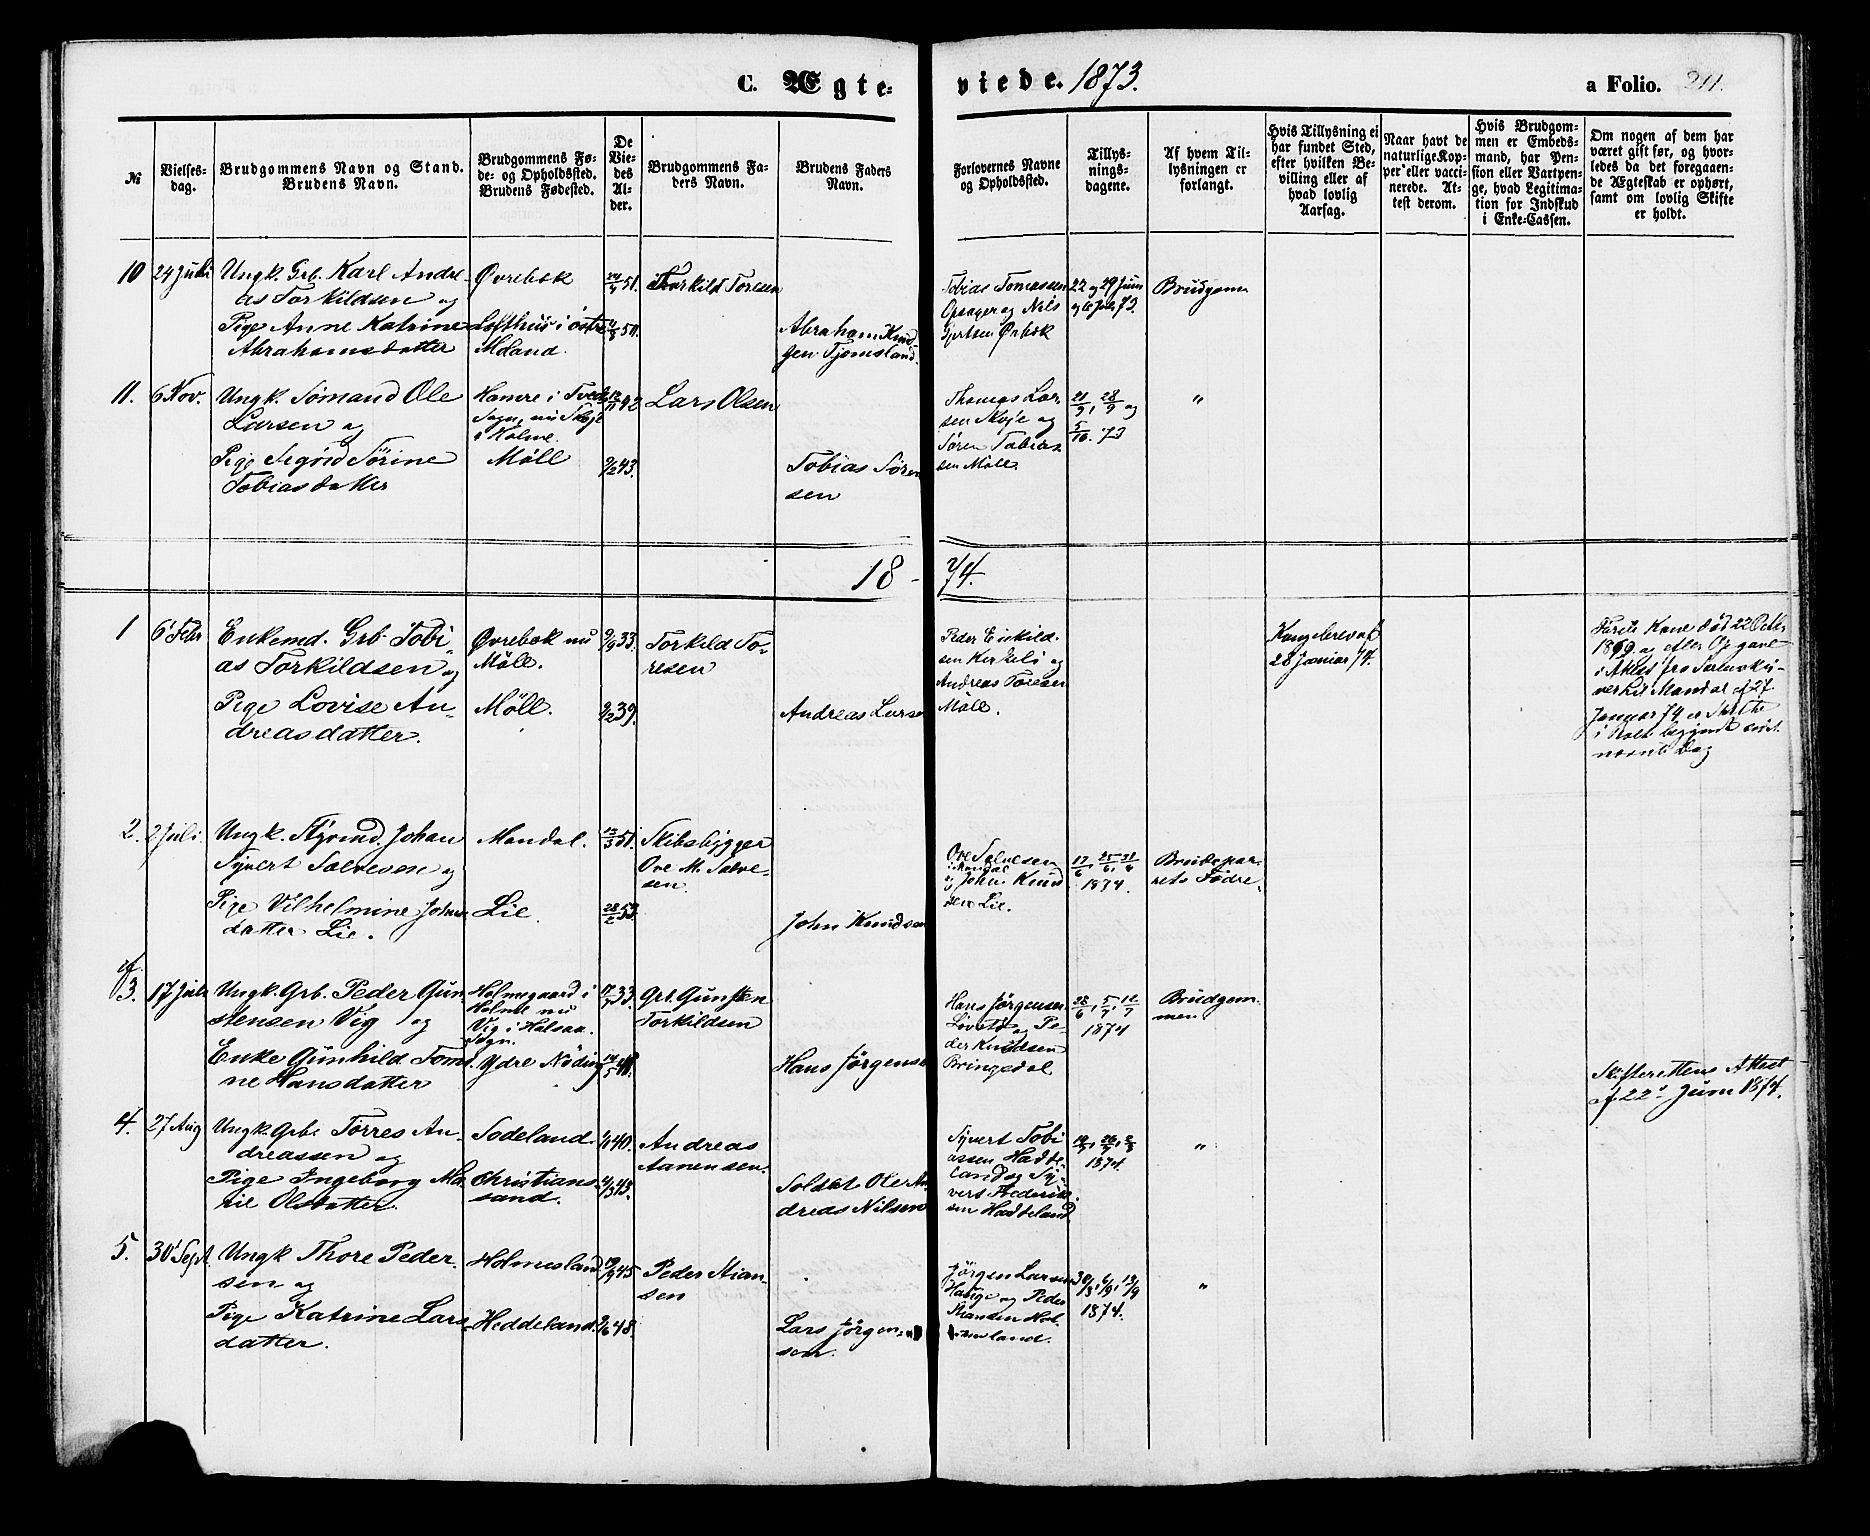 C. Ægte-
viede. 1873.
a Folio. 211.
№
Vielses-
dag.
Brudgommens Navn og Stand.
Brudens Navn.
Brudgommens Fø-
de- og Opholdssted.
Brudens Fødested.
De
Vie-
des
Al-
der.
Brudgommens Fa-
ders Navn.
Brudens Faders
Navn.
Forlovernes Navne
og Opholdssted.
Tillys-
nings-
dagene.
Af hvem Til-
lysningen er
forlangt.
Hvis Tillysning ei
har fundet Sted,
efter hvilken Be-
villing eller af
hvad lovlig
Aarsag.
Naar havt de
naturlige Kop-
per eller vacci-
nerede. At-
test derom.
Hvis Brudgom-
men er Embeds-
mand, har Pen-
sion eller Vartpen-
ge, hvad Legitima-
tion for Indskud
i Enke-Cassen.
Om nogen af dem har
været gift før, og hvor-
ledes da det foregaaen-
de Ægteskab er ophørt,
samt om lovlig Skifte
er holdt.
10 24 Juli
Ungk. Grb. Karl Andre-
as Torkildsen og
Pige Anne Katrine
Abrahamsdatter
Øvrebøk
Lofthus i østre
Moland.
51.
50.
Thorkild Toresen
Abraham Knud
sen Tjomsland.
Tobias Tomassen
Opsager og Nils
Gjertsen Ørbæk
22 og 29 Juni
og 6 Juli 73.
Brudgom
11. 6 Nov.
Ungk. Sømand Ole
Larsen og
Pige Sigrid Sörine
Tobiasdatter
Hamre i Tveds
Sogn, nu Skøje
i Holme.
Möll
12/11 42
9/2 43.
Lars Olsen
Tobias Sören
sen
Thomas Lar-
sen Skøje og
Søren Tobias
sen Möll.
21/9, 28/9 og
5/10. 73
"
18-74.
1 6 Febr
Enkemd. Grb. Tobi-
as Torkildsen og
Pige Lovise An-
dreasdatter.
Øvrebøk nu
Möll.
Möll.
9/9 33.
9/2 39.
Torkild To-
resen
Andreas Larse
Peder Eiskild-
sen Kirkeli og
Andreas Toresen
Möll.
Kongebrev af
28 Januar 74.
Første Kone død 22 Octbr
1869 og efter Opgave
i Attest fra Sorenskri-
ver Lil Mandal af 27
Januar 74 er Skifte
i Boet begyndt sidst
nævnte Dag
2. 2 Juli.
Ungk. Styrmd. Johan
Syvert Salvesen og
Pige Vilhelmine Johns
datter Lie.
Mandal.
Lie.
13/3 51.
28/2 53.
Skibsbygger
Ove M. Salve-
sen.
John Knudsen
Ove Salvesen
Mandal
og John Knud
sen Lie.
17/6, 25/6, 28/6
1874.
Brudepar-
rets Fødre.
3. 17 Juli
Ungk. Grb. Peder Gun-
stensen Vig og
Enke Gunhild Tom
ne Hansdatter
Holmegaard i
Holme nu
Vig i Halsaa
Sogn.
Ydre Nöding
17/7 33.
14/5 41.
Grb. Gunsten
Torkildsen
Hans Jørgense
Hans Jørgensen
Løvstö og Pe-
der Knudsen
Bringsdal
28/6, 5/7, 12/7
1874
Brudgom-
men.
Skifterettens Attest
af 22d Juni 1874.
4. 27 Aug
Ungk. Grb. Torres An-
dreassen og
Pige Ingeborg Ma-
rie Olsdatter.
Sodeland.
Christians-
sand.
40.
43.
Andreas
Aanensen.
Soldat Ole An-
dreas Nilsen
Syvert Tobi
assen Hadde-
land og Sy-
vert Frederik-
sen Haddeland
19/7, 26/7, 2/8
1874.
"
5. 30 Sept.
Ungk Thore Peder-
sen og
Pige Katrine Lars
datter.
Holmesland
Heddeland.
19/9 45
9/6 48.
Peder Stian-
sen
Lars Jörgen-
sen.
Jørgen Larsen
Hauge og Peder
Standen Hol-
mesland.
30/8, 6/9, 13/9
1874.
"